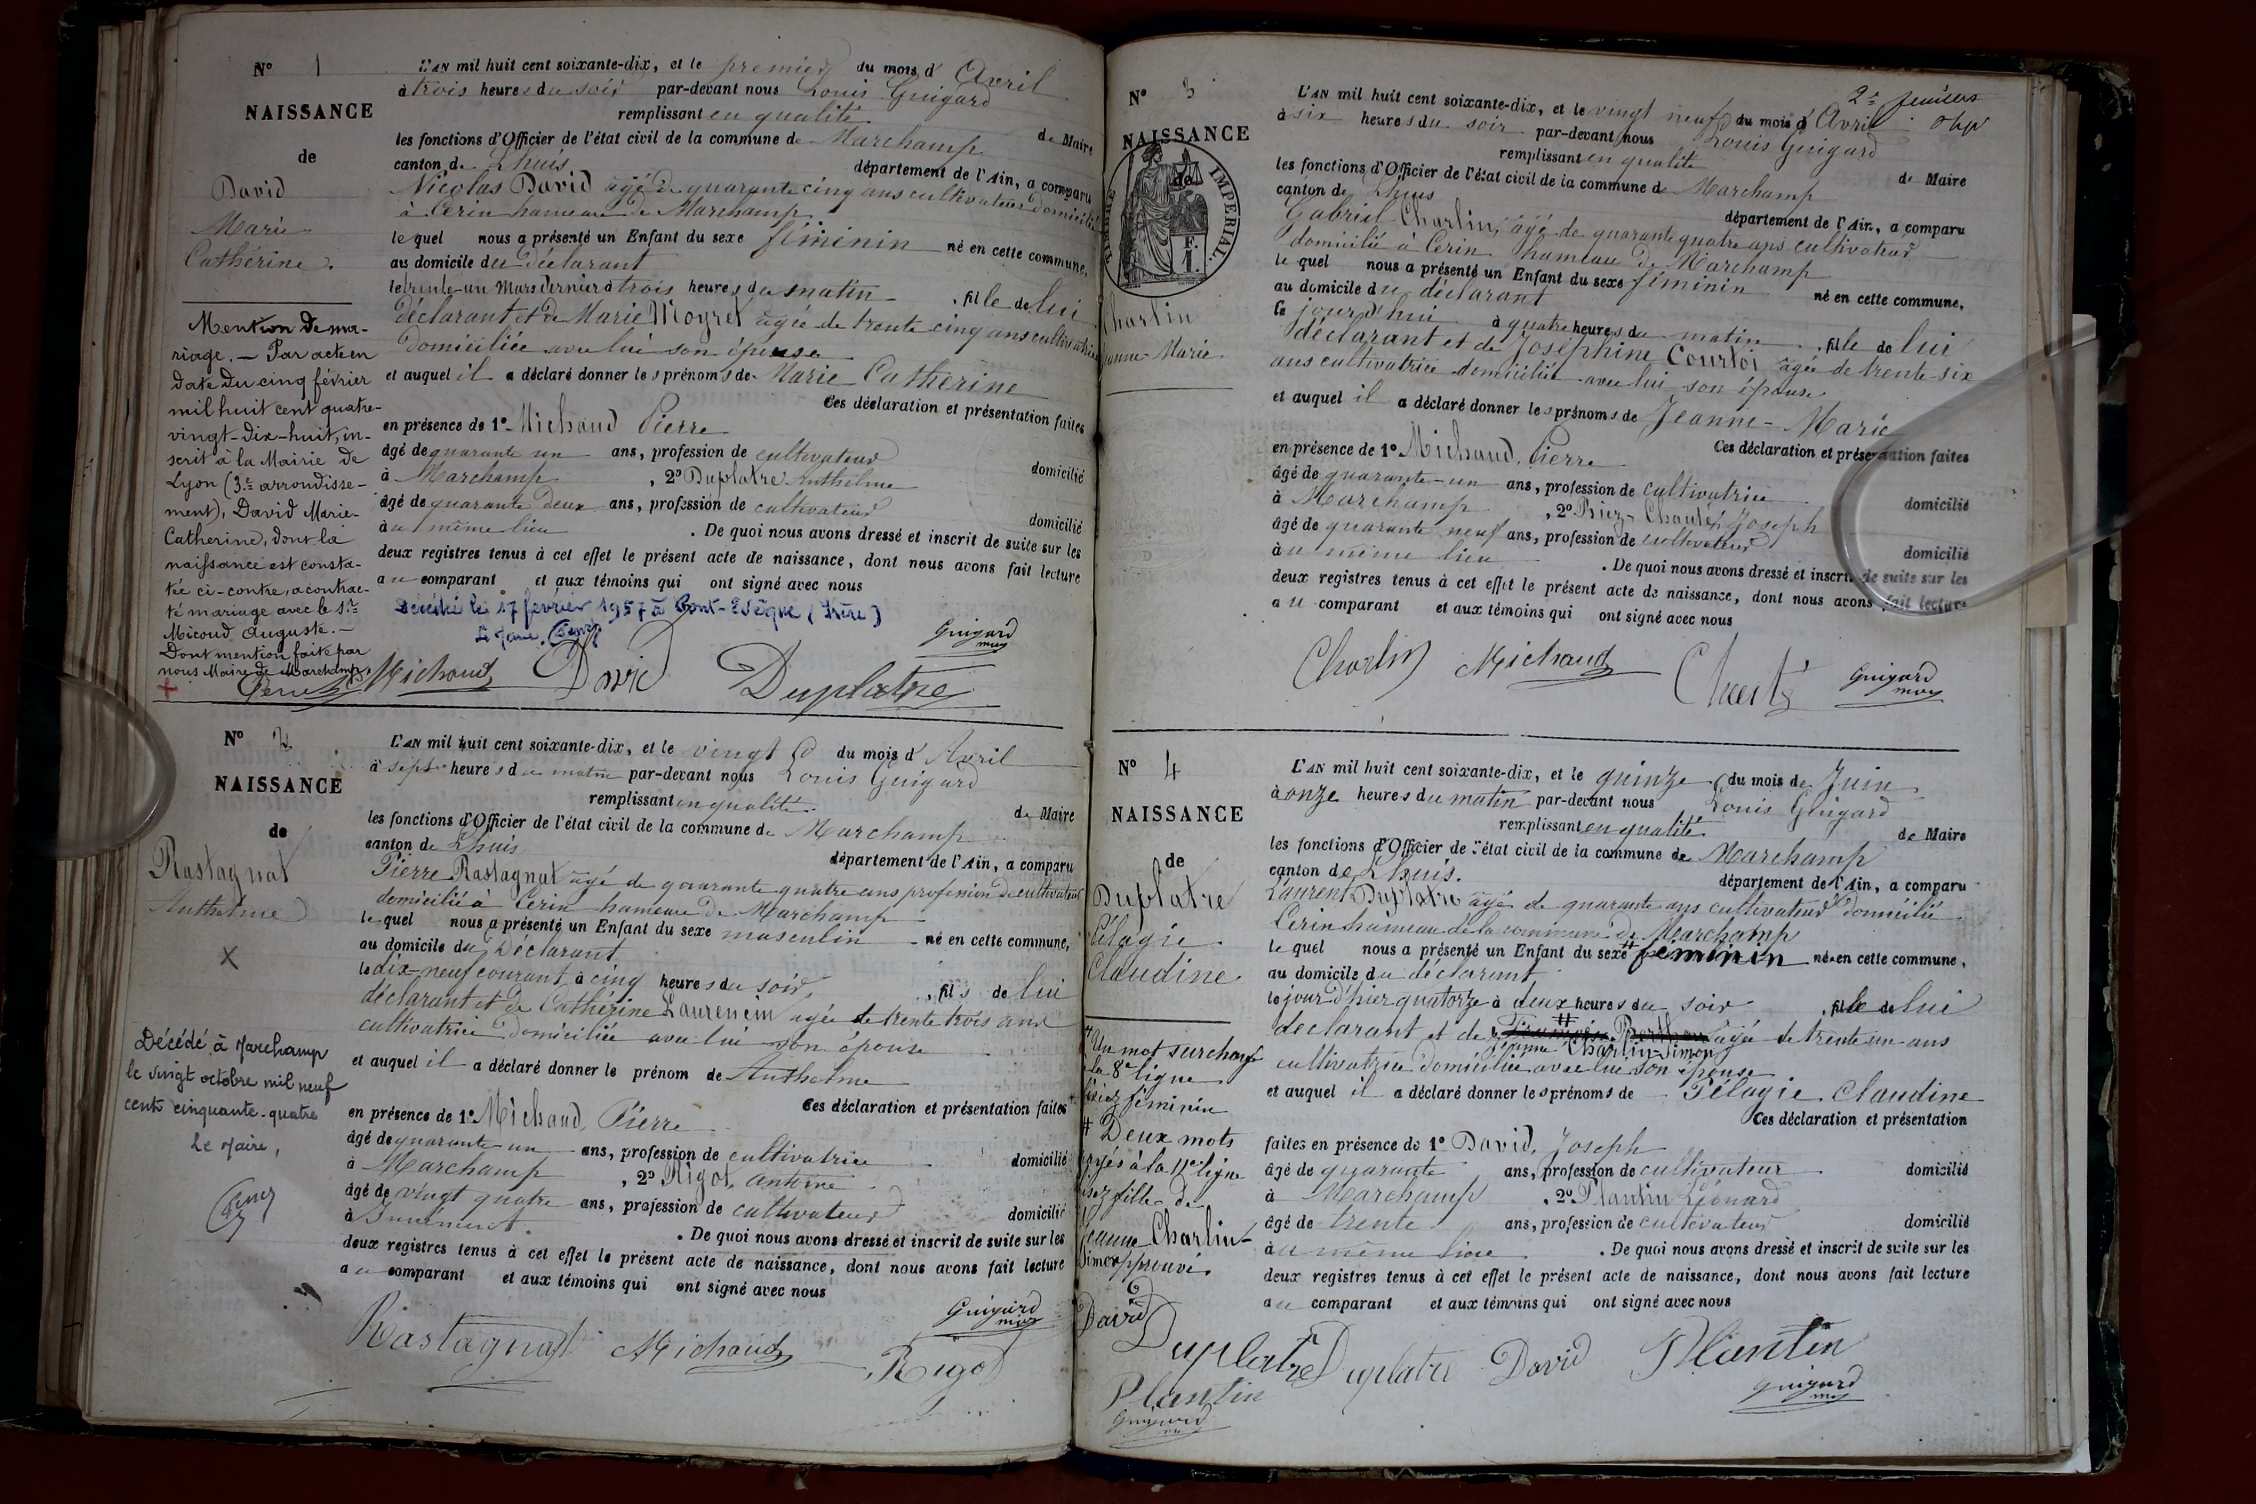 N° 1
NAISSANCE
de
David
Marie
Cathérine
L'AN mil huit cent soixante-dix, et le premier du mois d'Avril
à trois heures du soir par-devant nous Louis Guigard
remplissant en qualité de Maire
les fonctions d'Officier de l'état civil de la commune de Marchamp
canton de Lhuis département de l'Ain, a comparu
Nicolas David âgé de quarante cinq ans cultivateur domicilié
à Cerin hameau de Marchamp
lequel nous a présenté un Enfant du sexe féminin né en cette commune,
au domicile du déclarant
le trente-un Mars dernier à trois heures du matin, fille de lui
déclarant et de Marie Moyret âgée de trente cinq ans cultivatrice
domiciliée avec lui son épouse
et auquel il a déclaré donner les prénoms de Marie Catherine
Ces déclaration et présentation faites
en présence de 1° Michaud Pierre
âgé de quarante un ans, profession de cultivateur domicilié
à Marchamp, 2° Duplatre Anthelme
âgé de quarante deux ans, profession de cultivateur domicilié
au même lieu. De quoi nous avons dressé et inscrit de suite sur les
deux registres tenus à cet effet le présent acte de naissance, dont nous avons fait lecture
au comparant et aux témoins qui ont signé avec nous
Décédée le 17 février 1957 à Pont-Evêque (Isère)
Le Maire
Guigard
Michaud David Duplatre
Mention de ma-
riage. — Par acte en
date du cinq février
mil huit cent quatre-
vingt-dix-huit, in-
scrit à la Mairie de
Lyon (3e arrondisse-
ment), David Marie-
Catherine, dont la
naissance est consta-
tée ci-contre, a contrac-
té mariage avec le Sr
Micoud Auguste. —
Dont mention faite par
nous Maire de Marchamp.
N° 2
NAISSANCE
de
Rastagnat
Anthelme
X
L'AN mil huit cent soixante-dix, et le vingt du mois d'Avril
à sept heures du matin par-devant nous Louis Guigard
remplissant en qualité de Maire
les fonctions d'Officier de l'état civil de la commune de Marchamp
canton de Lhuis département de l'Ain, a comparu
Pierre Rastagnat âgé de quarante quatre ans profession de cultivateur
domicilié à Cerin hameau de Marchamp
lequel nous a présenté un Enfant du sexe masculin né en cette commune,
au domicile du Déclarant
le dix-neuf courant à cinq heures du soir, fils de lui
déclarant et de Cathérine Laurencin agée de trente trois ans
cultivatrice domiciliée avec lui son épouse
et auquel il a déclaré donner le prénom de Anthelme
Ces déclaration et présentation faites
en présence de 1° Michaud Pierre
âgé de quarante un ans, profession de cultivatrice domicilié
à Marchamp, 2° Rigot Antoine
âgé de vingt quatre ans, profession de cultivateur domicilié
à. De quoi nous avons dressé et inscrit de suite sur les
deux registres tenus à cet effet le présent acte de naissance, dont nous avons fait lecture
au comparant et aux témoins qui ont signé avec nous
Guigard
Rastagnat Michaud Rigot
Décédé à Marchamp
le vingt octobre mil neuf
cent cinquante-quatre
Le Maire,
2e feuillet
N° 3
NAISSANCE
de
TIMBRE IMPERIAL
1 F.
Charlin
Jeanne-Marie
L'AN mil huit cent soixante-dix, et le vingt neuf du mois d'Avril
à six heures du soir par-devant nous Louis Guigard
remplissant en qualité de Maire
les fonctions d'Officier de l'état civil de la commune de Marchamp
canton de Lhuis département de l'Ain, a comparu
Gabriel Charlin, âgé de quarante quatre ans cultivateur
domicilié à Cerin hameau de Marchamp
lequel nous a présenté un Enfant du sexe féminin né en cette commune,
au domicile du déclarant
le jourd'hui à quatre heures du matin, fille de lui
déclarant et de Joséphine Courtoi agée de trente-six
ans cultivatrice domiciliée avec lui son épouse
et auquel il a déclaré donner les prénoms de Jeanne-Marie
Ces déclaration et présentation faites
en présence de 1° Michaud, Pierre
âgé de quarante-un ans, profession de cultivatrice domicilié
à Marchamp, 2° Joseph
âgé de quarante neuf ans, profession de cultivateur domicilié
au même lieu. De quoi nous avons dressé et inscrit de suite sur les
deux registres tenus à cet effet le présent acte de naissance, dont nous avons fait lecture
au comparant et aux témoins qui ont signé avec nous
Charlin Michaud Guigard
N° 4
NAISSANCE
de
Duplatre
Pélagie
Claudine
L'AN mil huit cent soixante-dix, et le quinze du mois de Juin
à onze heures du matin par-devant nous Louis Guigard
remplissant en qualité de Maire
les fonctions d'Officier de l'état civil de la commune de Marchamp
canton de Lhuis. département de l'Ain, a comparu
Laurent Duplatre âgé de quarante ans cultivateur domicilié
Cerin hameau de la commune de Marchamp
lequel nous a présenté un Enfant du sexe # féminin né en cette commune,
au domicile du déclarant
le jour d'hier quatorze à deux heures du soir, fille de lui
declarant et de Jeanne Charlin-Simon agée de trente-un ans
cultivatrice domiciliée avec lui son épouse
et auquel il a déclaré donner les prénoms de Pélagie Claudine
Ces déclaration et présentation
faites en présence de 1° David, Joseph
âgé de quarante ans, profession de cultivateur domicilié
à Marchamp, 2° Plantin Léonard
âgé de trente ans, profession de cultivateur domicilié
au même lieu. De quoi nous avons dressé et inscrit de suite sur les
deux registres tenus à cet effet le présent acte de naissance, dont nous avons fait lecture
au comparant et aux témoins qui ont signé avec nous
Un mot surchargé
la 8e ligne
lisez féminin
# Deux mots
rayés à la 11e ligne
lisez fille de
Jeanne Charlin-
Simon approuvé.
David
Duplatre Duplatre David Plantin
Plantin Guigard
Guigard